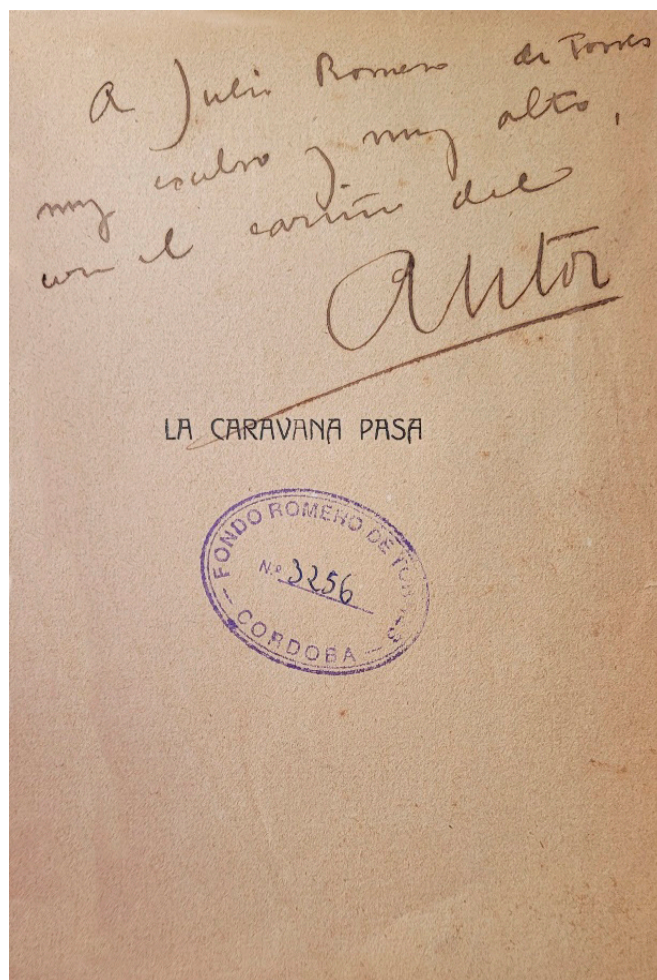 A Julio Romero de Torres
muy y muy alto,
con el cariño del
Autor
LA CARAVANA PASA
FONDO ROMERO DE TORRES
N.º 3256
CORDOBA